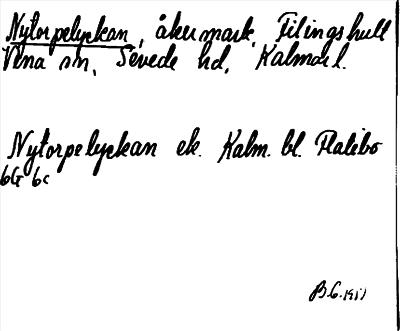 Nytorpelyckan, åkermark, Filingshult
Vena sn, Sevede hd, Kalmar l.
Nytorpelyckan ek. Kalm. bl. Flatebo
6G 6c
B.G.